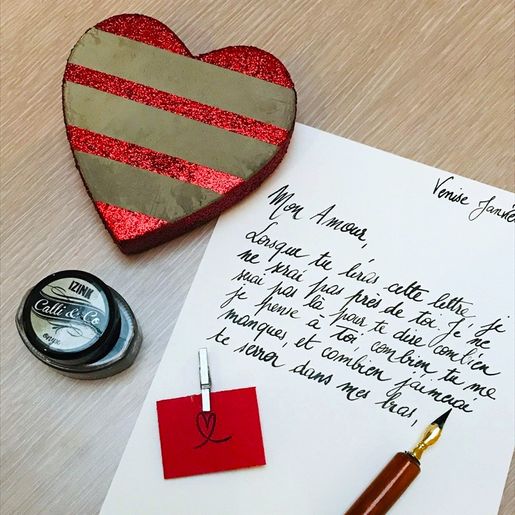 Venise Janvier
Mon Amour,
Lorsque tu liras cette lettre, je
ne serai pas près de toi. Je ne
suis pas là pour te dire combien
je pense à Toi combien tu me
manques, et combien j'aimerai
te serrer dans mes bras,
IZINK
Calli & Co
onyx